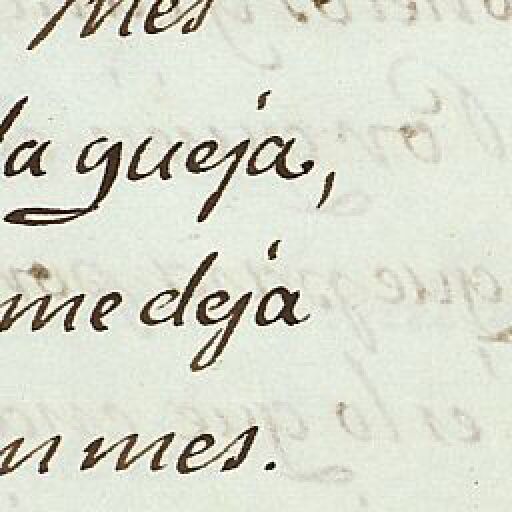 mes
la queja,
me deja
un mes.